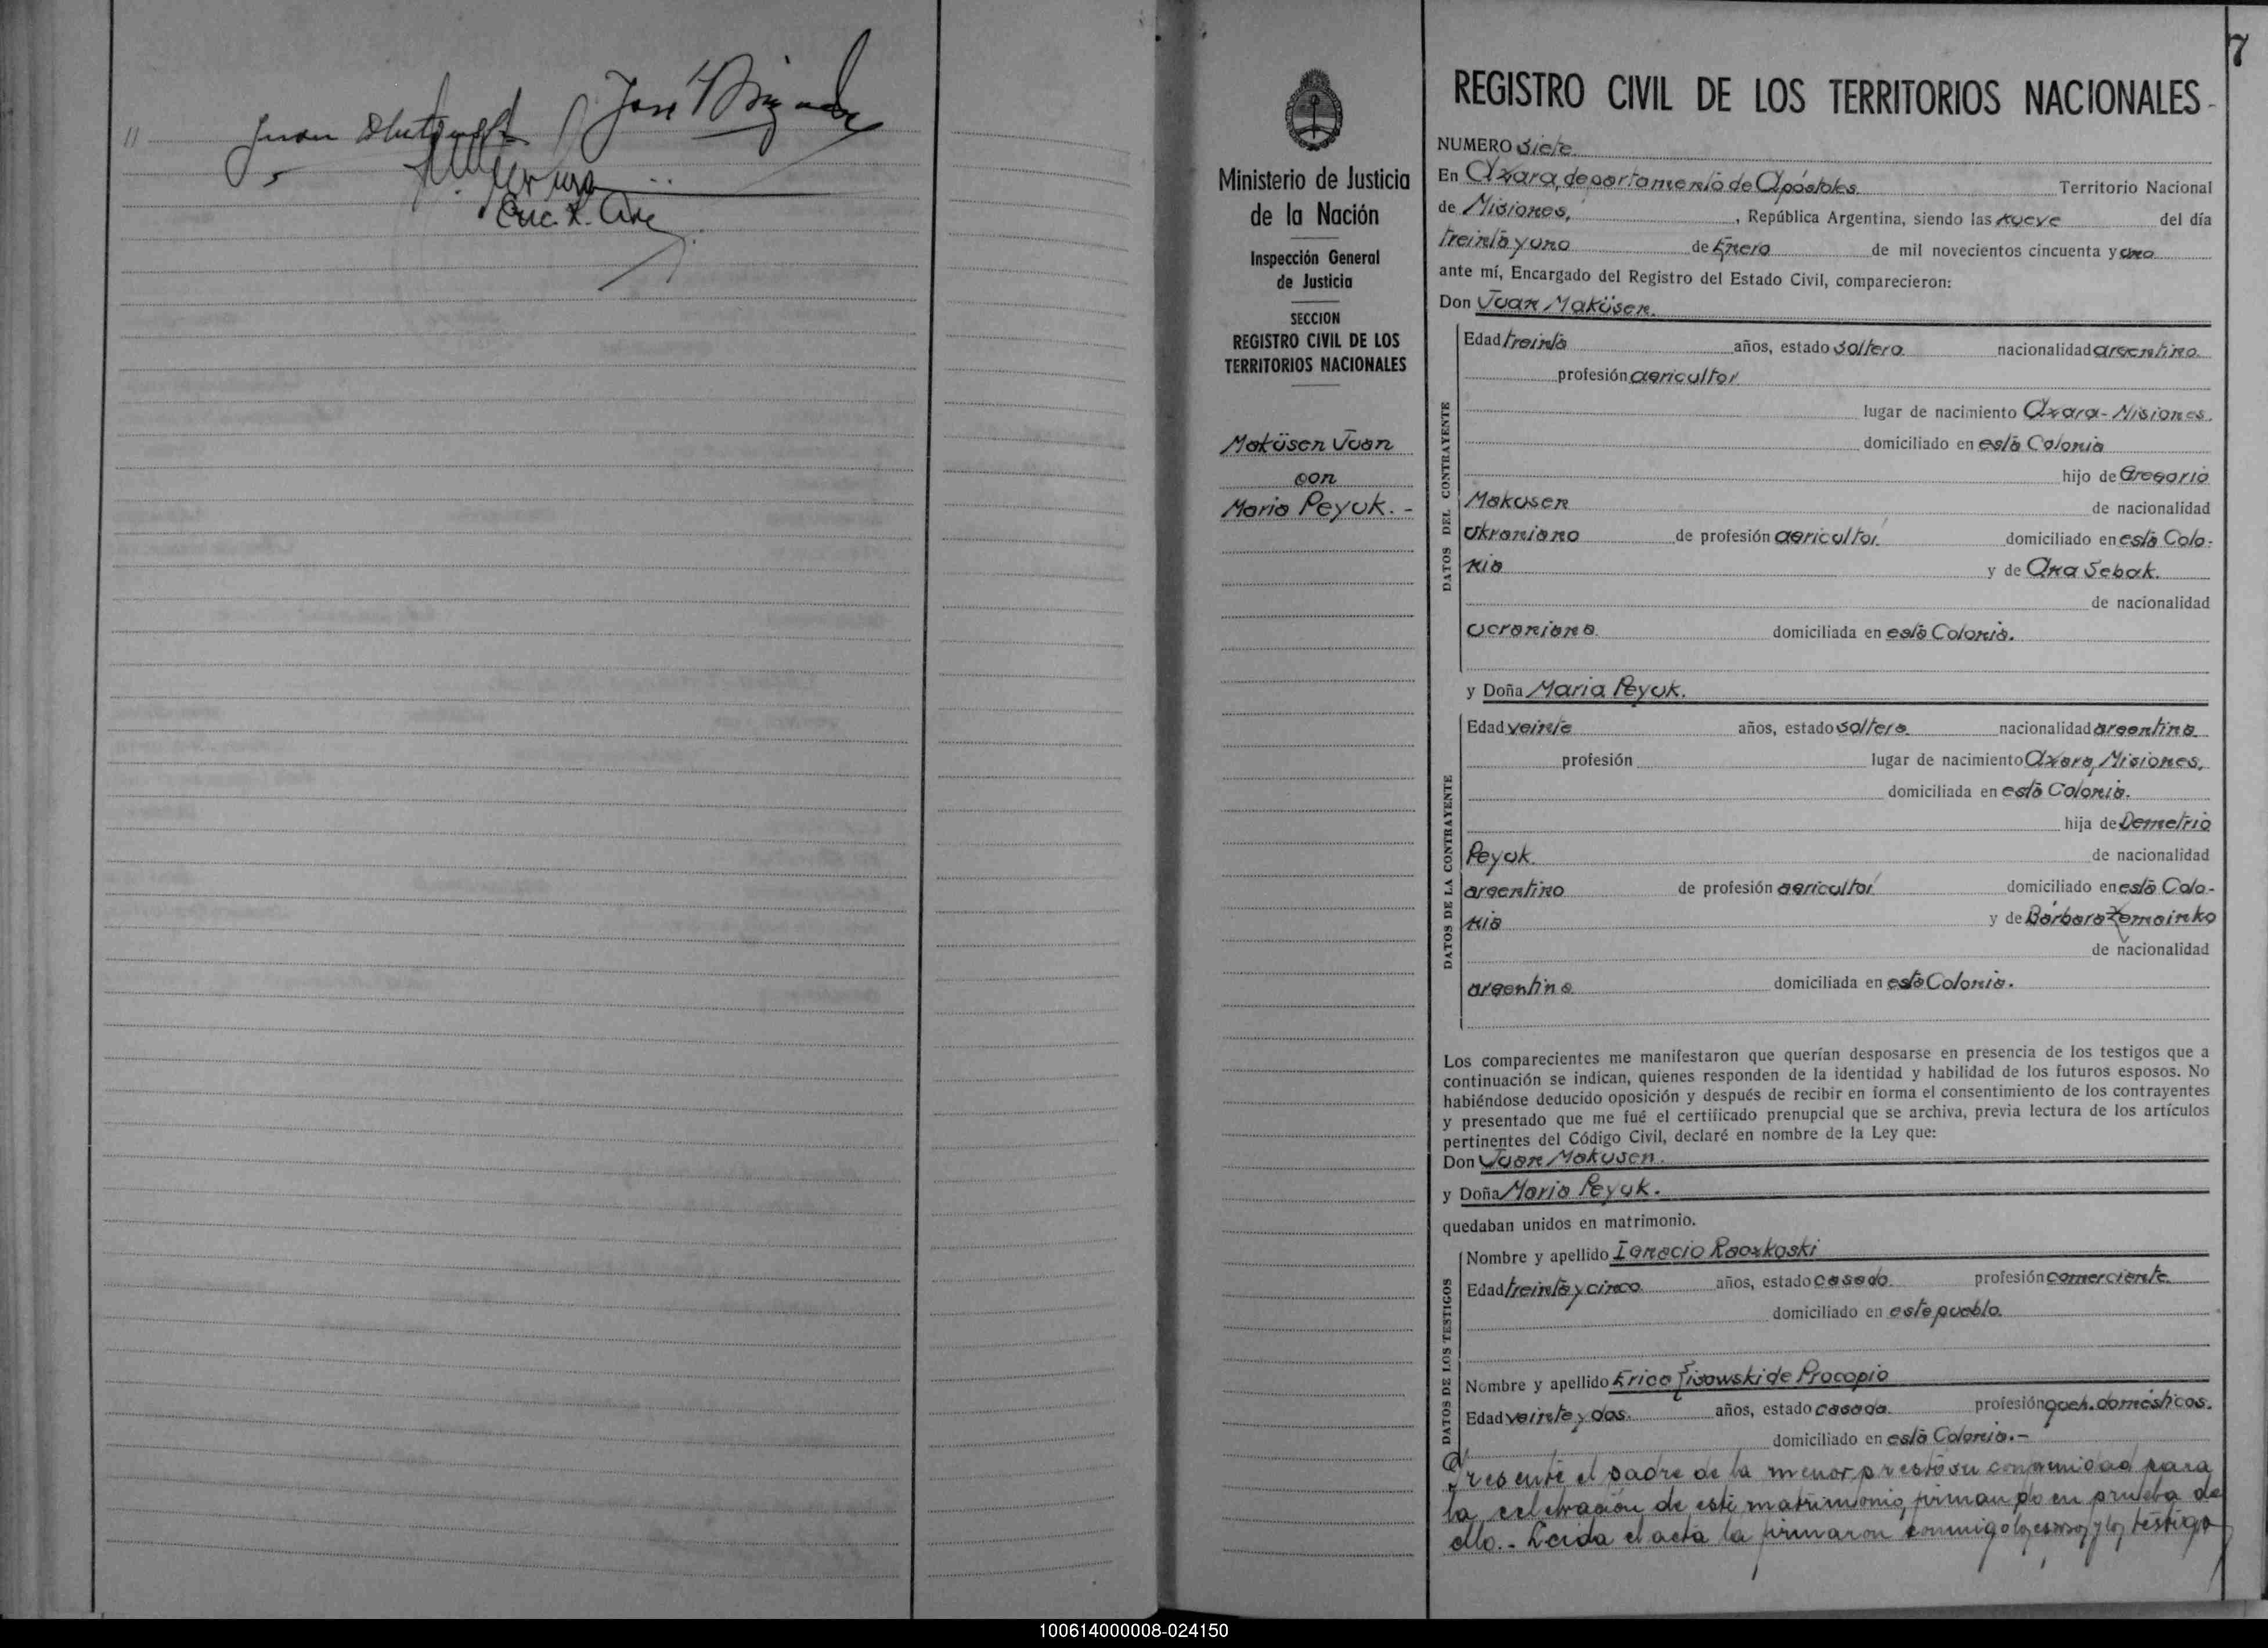 Juan
José
7
REGISTRO CIVIL DE LOS TERRITORIOS NACIONALES
Ministerio de Justicia
de la Nación
Inspección General
de Justicia
SECCION
REGISTRO CIVIL DE LOS
TERRITORIOS NACIONALES
Maküsen Juan
con
Maria Peyuk. -
NUMERO siete
En Azara, departamento de Apóstoles Territorio Nacional
de Misiones, , República Argentina, siendo las nueve del día
treinta y uno de Enero de mil novecientos cincuenta y uno
ante mí, Encargado del Registro del Estado Civil, comparecieron:
Don Juan Maküsen.
DATOS DEL CONTRAYENTE
Edad treinta años, estado soltero nacionalidad argentino
profesión agricultor
lugar de nacimiento Azara - Misiones.
domiciliado en esta Colonia
hijo de Gregorio
Makusen de nacionalidad
Ukraniano de profesión agricultor domiciliado en esta Colo-
nia y de Ana Sebak.
de nacionalidad
ucraniana domiciliada en esta Colonia.
y Doña Maria Peyuk.
DATOS DE LA CONTRAYENTE
Edad veinte años, estado soltera nacionalidad argentina
profesión lugar de nacimiento Azara, Misiones,
domiciliada en esta Colonia.
hija de Demetrio
Peyuk. de nacionalidad
argentino de profesión agricultor domiciliado en esta Colo-
nia y de Bárbara Zemoinko
de nacionalidad
argentina domiciliada en esta Colonia.
Los comparecientes me manifestaron que querían desposarse en presencia de los testigos que a
continuación se indican, quienes responden de la identidad y habilidad de los futuros esposos. No
habiéndose deducido oposición y después de recibir en forma el consentimiento de los contrayentes
y presentado que me fué el certificado prenupcial que se archiva, previa lectura de los artículos
pertinentes del Código Civil, declaré en nombre de la Ley que:
Don Juan Makusen.
y Doña Maria Peyuk.
quedaban unidos en matrimonio.
DATOS DE LOS TESTIGOS
Nombre y apellido Ignacio
Edad treinta y cinco años, estado casado profesión comerciante
domiciliado en este pueblo
Nombre y apellido Erica Lisowski de Procopio
Edad veinte y dos. años, estado casada profesión queh. domésticos.
domiciliado en esta Colonia.-
Presente el padre de la menor prestó su conformidad para
la celebración de este matrimonio, firmando en prueba de
ello.- Leida el acta la firmaron conmigo los esposos y los testigos
100614000008-024150